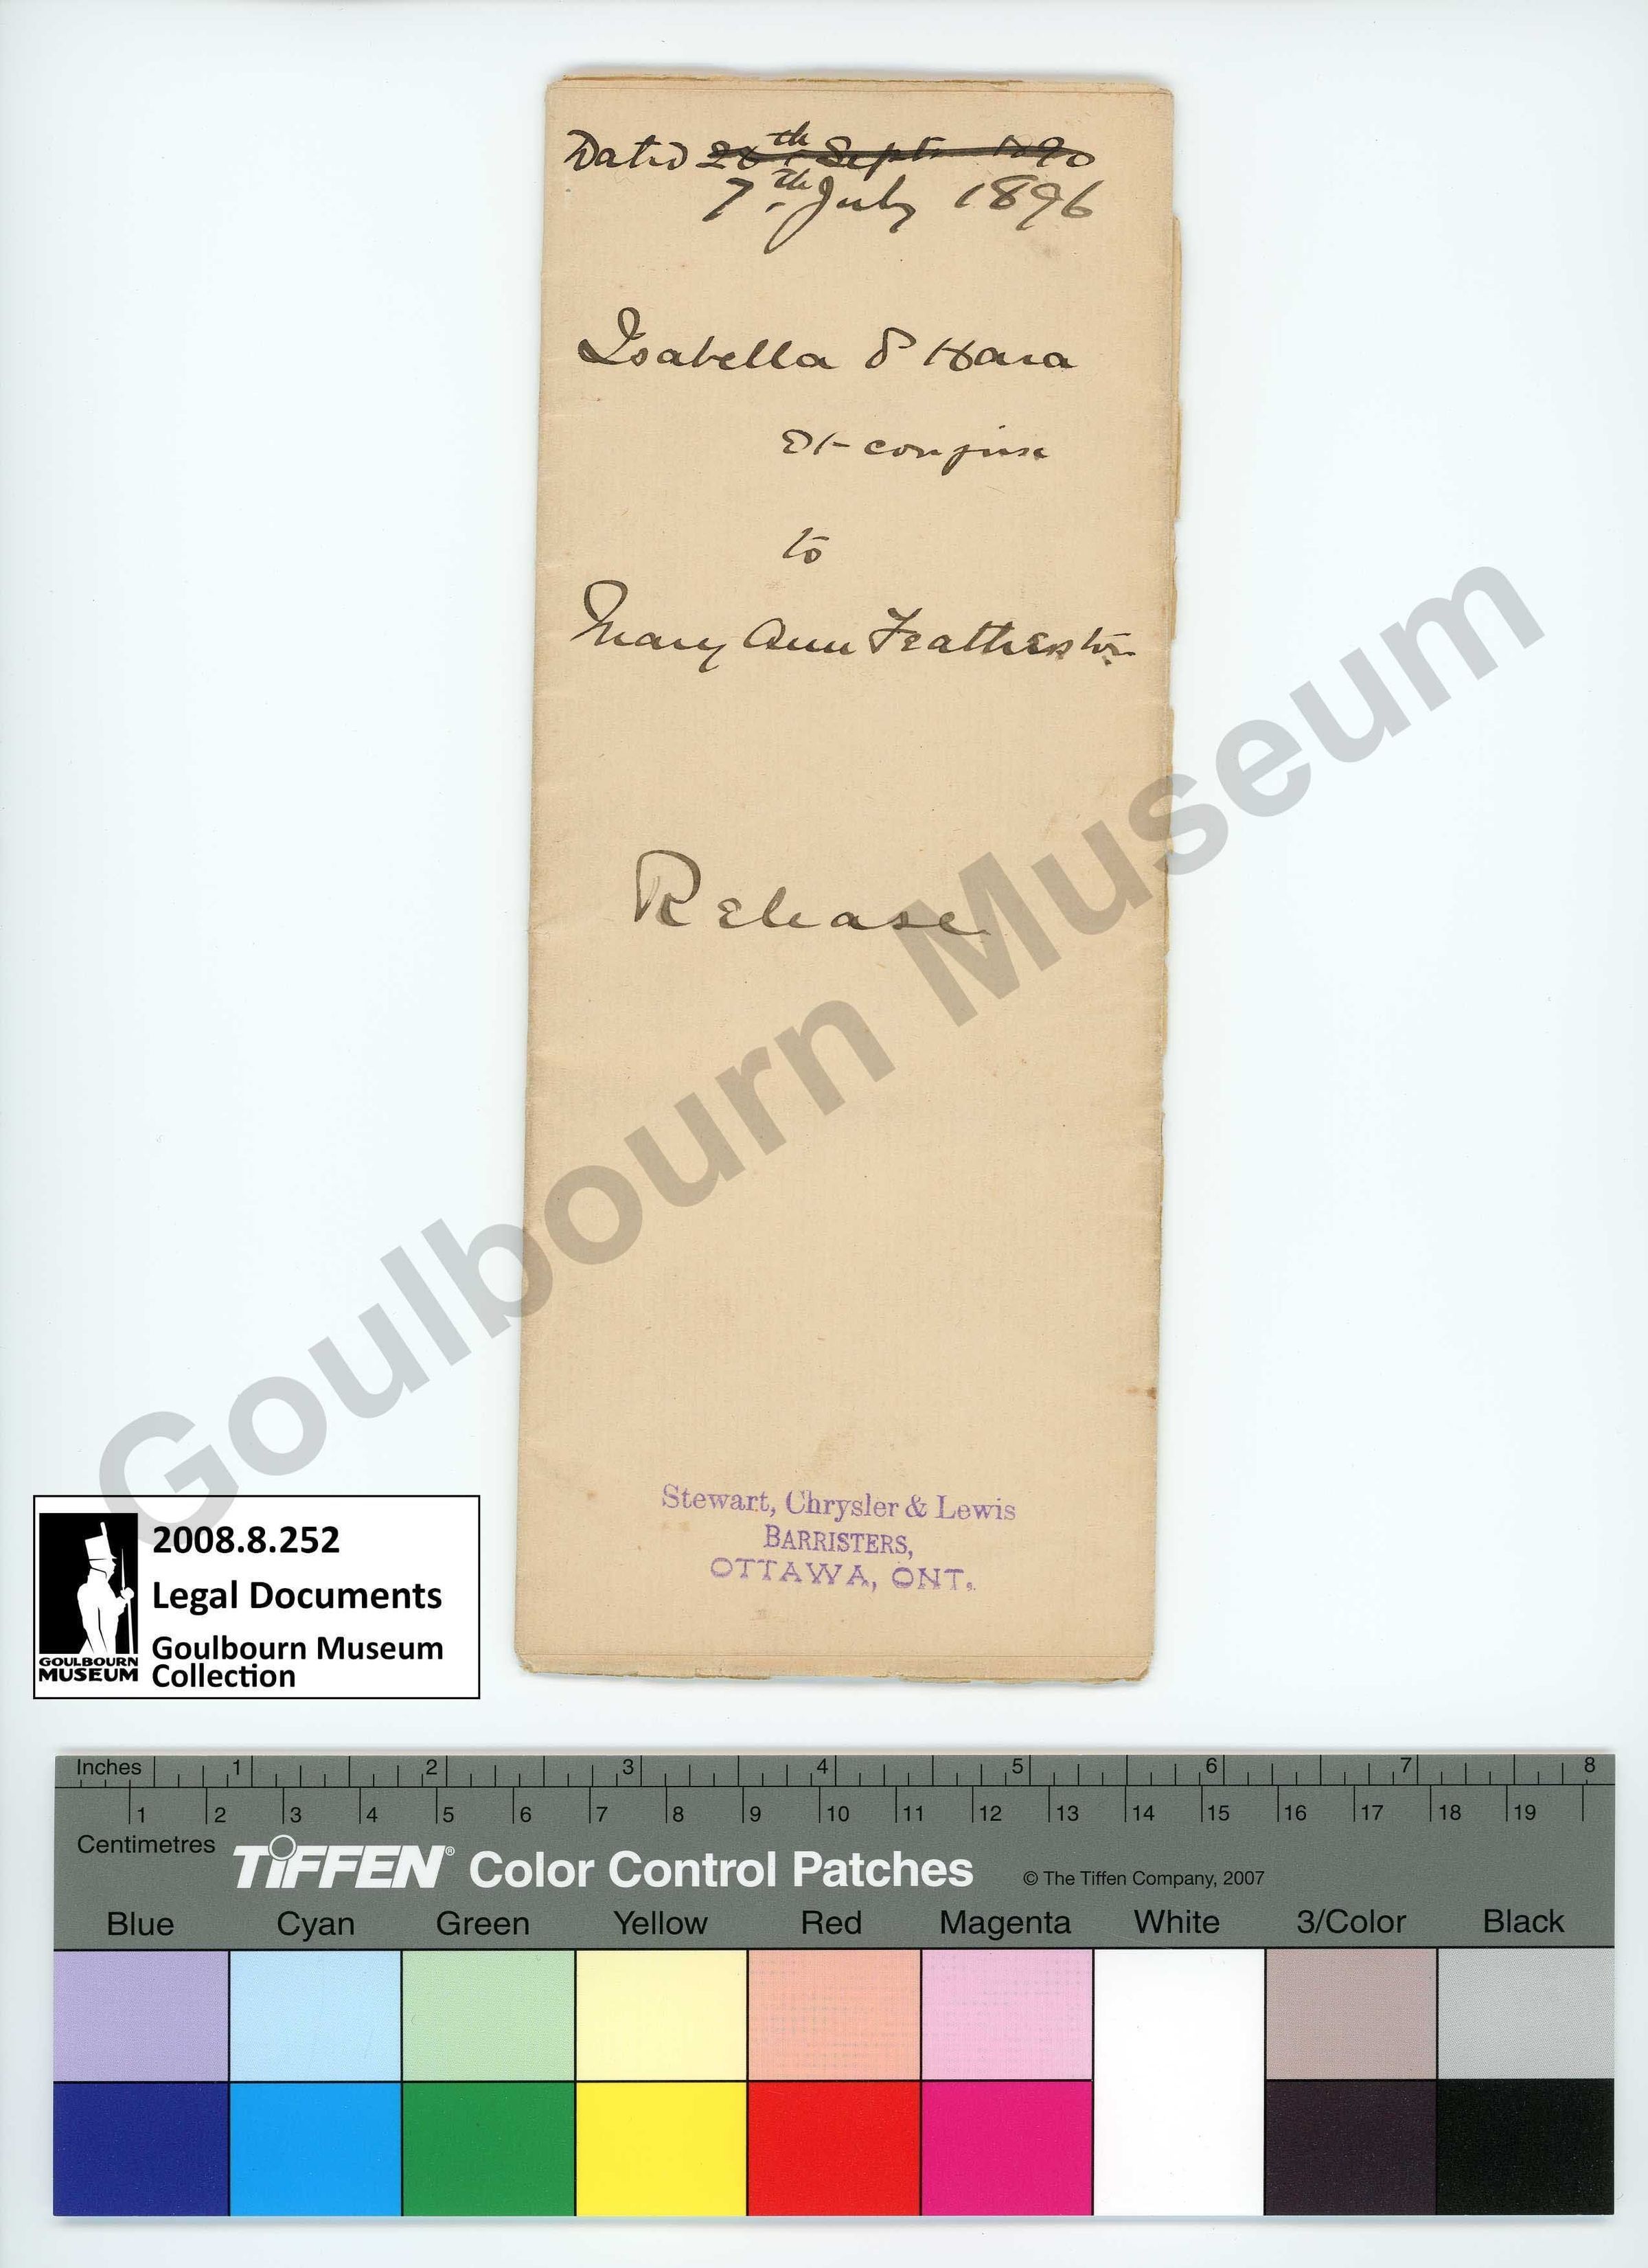 Dated 26th Sept. 1890
7th July 1896
Isabella O'Hara
Et conjuse
to
Mary Ann Featherston
Release
Stewart, Chrysler & Lewis
BARRISTERS,
OTTAWA, ONT.
Goulbourn Museum
2008.8.252
Legal Documents
Goulbourn Museum
Collection
GOULBOURN
MUSEUM
Inches 1 2 3 4 5 6 7 8
1 2 3 4 5 6 7 8 9 10 11 12 13 14 15 16 17 18 19
Centimetres
TIFFEN® Color Control Patches © The Tiffen Company, 2007
Blue Cyan Green Yellow Red Magenta White 3/Color Black